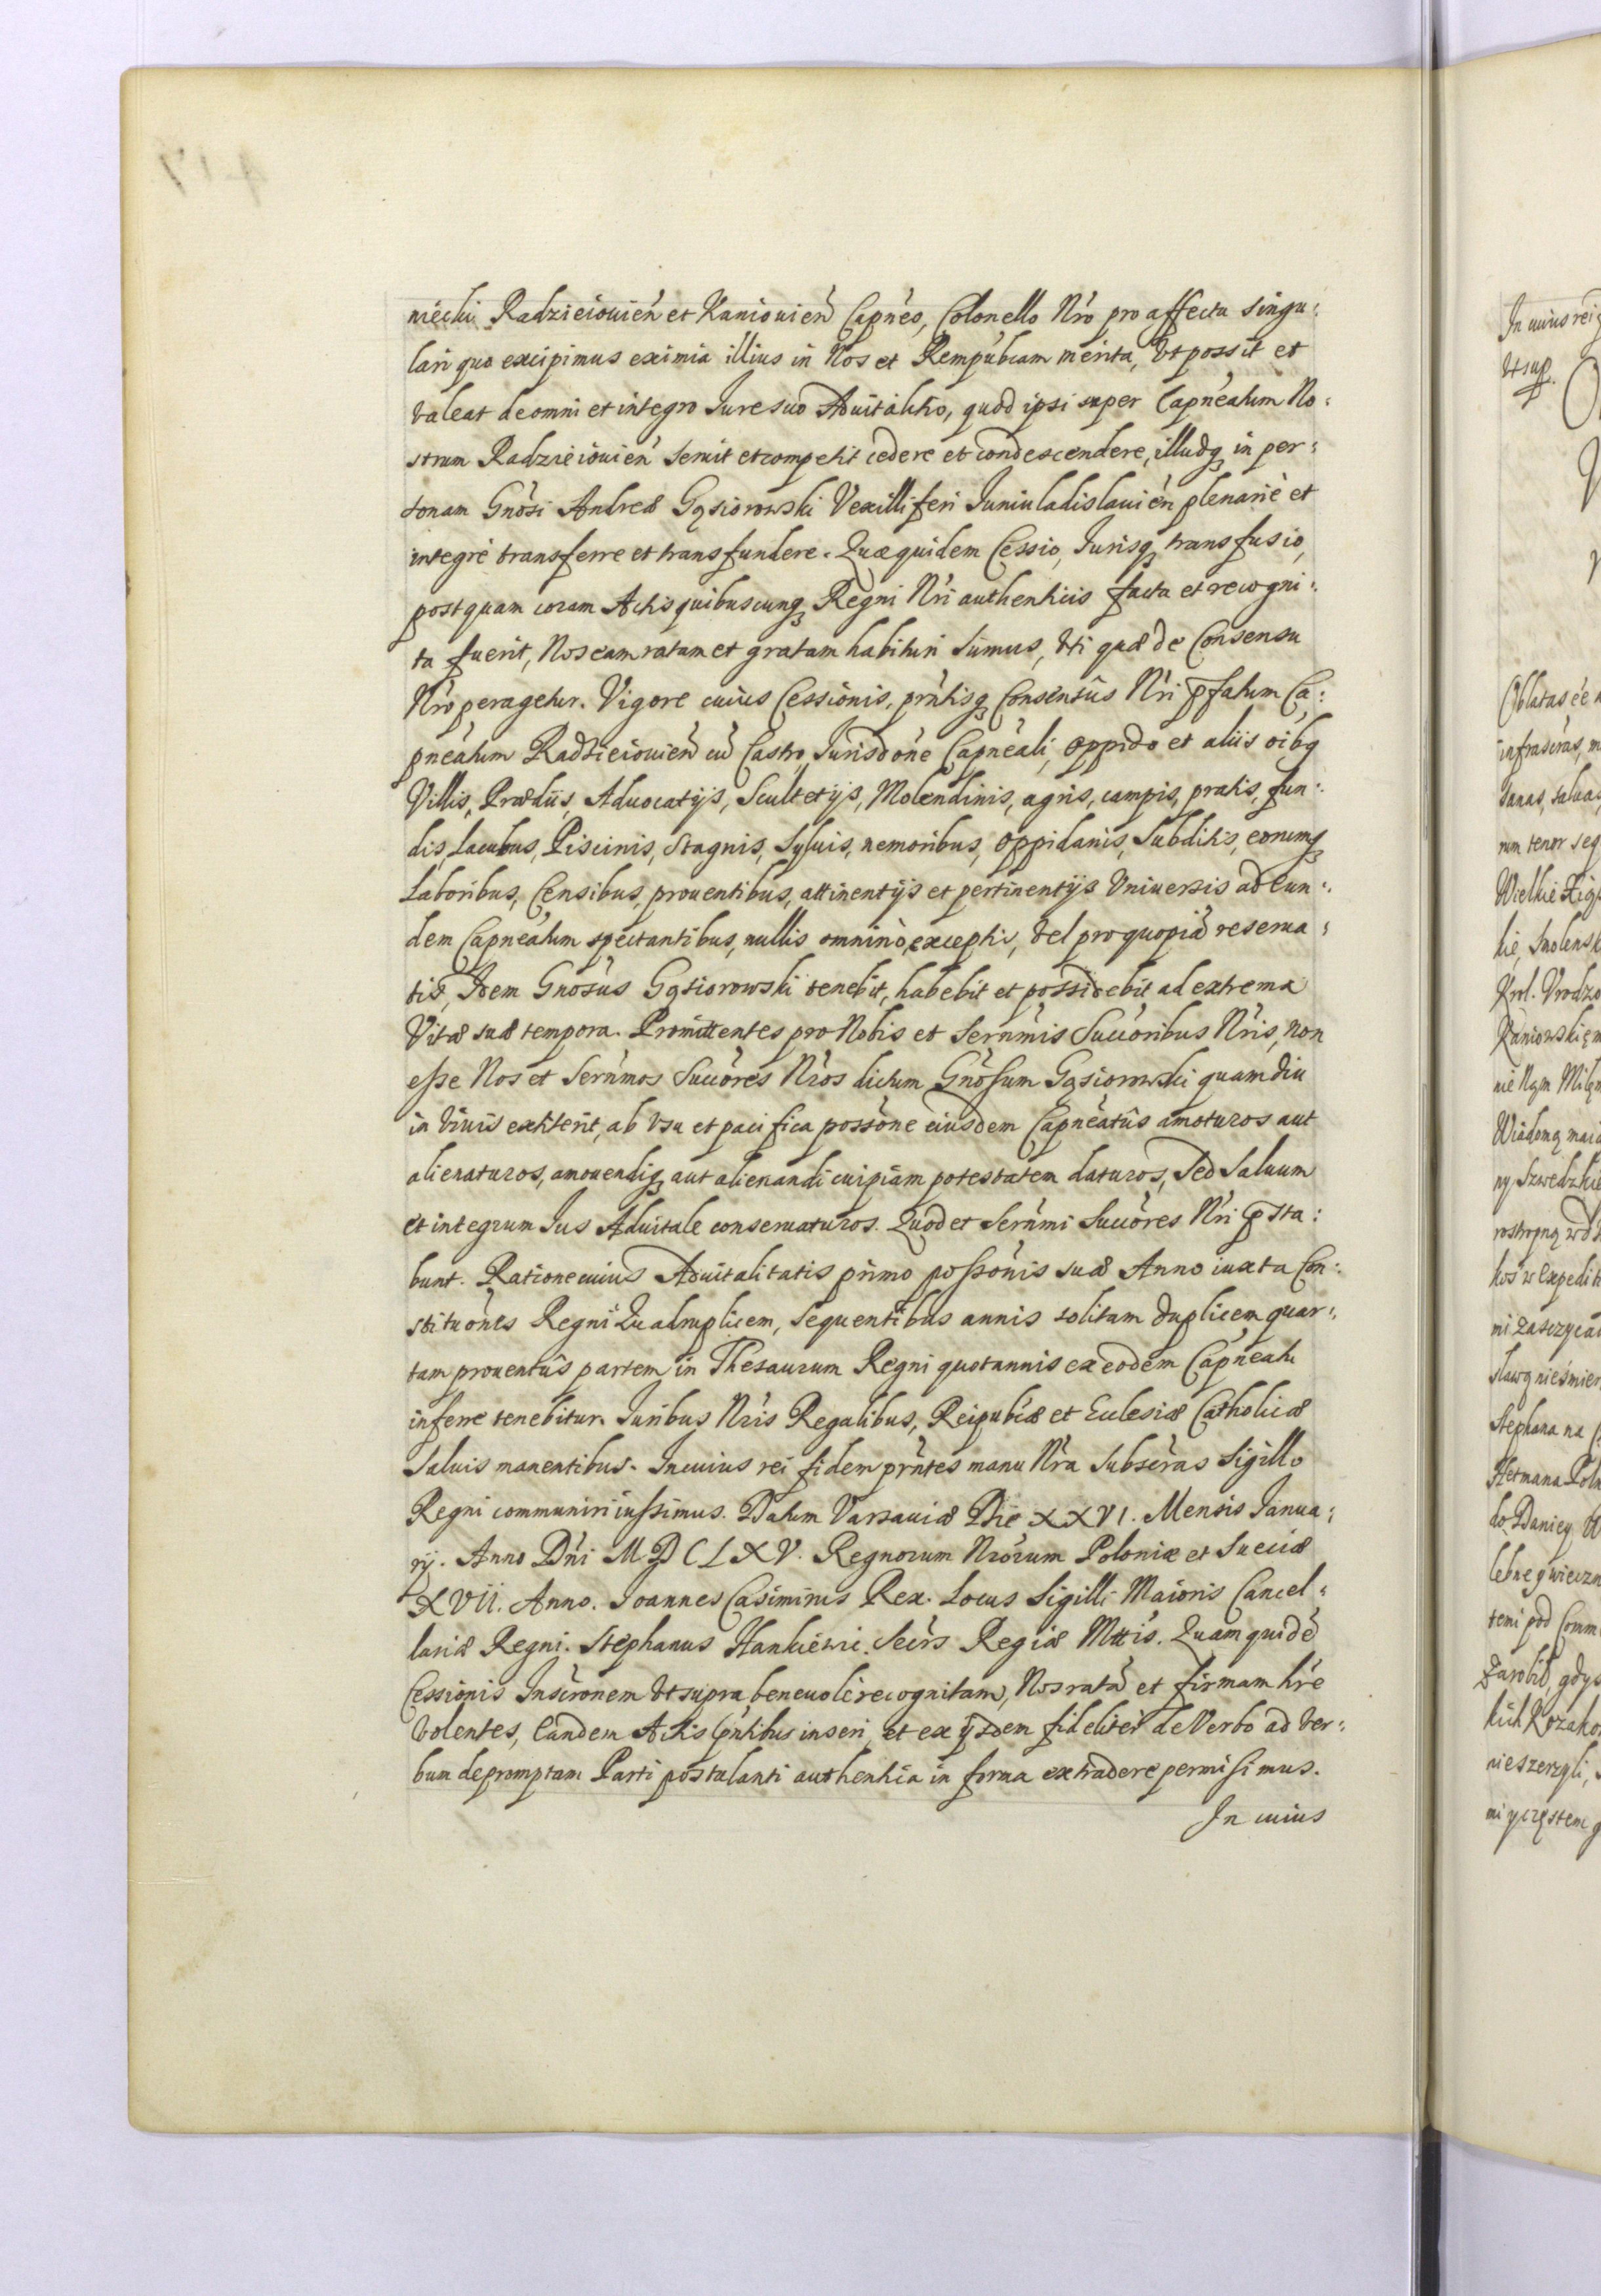 niecki Radzieiouień et Kaniouień Capńeo, Colonello Nŕo pro affectu singu:
lari quo excipimus eximia illius in Nos et Rempubcam merita, Vt possit et
valeat de omni et integro Iure suo Aduitalitio, quod ipsi super Capńeatum No:
strum Radzieiouień seruit et competit cedere et condescendere, illudq in per:
sonam Gnosi Andreæ Gąsiorowski Vexilliferi Iuniuladislauień plenariè et
integrè transferre et transfundere. Quæ quidem Cessio, Iurisq transfusio,
postquam coram Actis quibuscunq Regni Nŕi authenticis facta et recogni:
ta fuerit, Nos eam ratam et gratam habituri sumus, Vti quæ de Consensu
Nŕo peragetur. Vigore cuius Cessionis, pŕntisq Consensûs Nŕi p̄fatum Ca:
pńeatum Radzieiouień cũ Castro, Iurisdońe Capńeali, oppido et aliis oíbq
Villis, Prædiis, Aduocatijs, Scultetijs, Molendinis, agris, campis, pratis, fun:
dis, Lacubus, Piscinis, Stagnis, Syluis, nemoribus, oppidanis, Subditis, eorumq
Laboribus, Censibus, prouentibus, attinentijs et pertinentijs Vniuersis ad Eun:
dem Capńeatum spectantibus, nullis omninò exceptis, vel pro quopiã reserua:
tis, Idem Gnosus Gąsiorowski tenebit, habebit et possidebit ad extrema
Vitæ suæ tempora. Promittentes pro Nobis et Serńmis Succoribus Nŕis, non
esse Nos et Serńmos Succores Nŕos dictum Gnosum Gąsiorowski quam diu
in viuis extiterit, ab vsu et pacifica possone eiusdem Capńeatûs amoturos aut
alienaturos, amouendiq aut alienandi cuipiam potestatem daturos, Sed Saluum
et integrum Ius Aduitale conseruaturos. Quod et Serńmi Succores Nŕi p̄sta:
bunt. Ratione cuius Aduitalitatis primo possonis suæ Anno iuxta Con:
stitutońes Regni Quadruplicem, Sequentibus annis solitam duplicem quar:
tam prouentûs partem in Thesaurum Regni quotannis ex eodem Capńeatu
inferre tenebitur. Iuribus Nŕis Regalibus, Reipubcæ et Ecclesiæ Catholicæ
Saluis manentibus. In cuius rei fidem pŕntes manu Nŕa Subscŕas Sigillo
Regni communiri iussimus. Datum Varsauiæ Die XXVI. Mensis Ianua:
rij. Anno Dńi MDCLXV. Regnorum Nŕorum Poloniæ et Sueciæ
XVII. Anno. Ioannes Casimirus Rex. Locus Sigilli Maioris Cancel:
lariæ Regni. Stephanus Hankiewic. Secŕs Regiæ Mttis. Quam quidẽ
Cessionis Inscŕonem vt supra beneuolè recognitam, Nos ratã et firmam hŕe
volentes, Eandem Actis pńtibus inseri, et ex ijsdem fideliter de Verbo ad ver:
bum depromptam Parti postulanti authentica in forma extradere permisimus.
In cuius